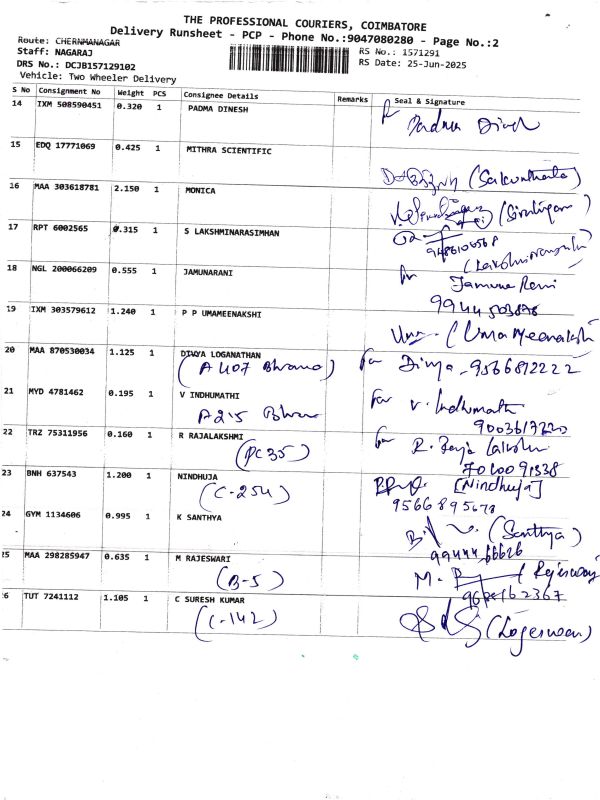 THE PROFESSIONAL COURIERS, COIMBATORE
Delivery Runsheet - PCP - Phone No.:9047080280 - Page No.:2
Route: CHERNMANAGAR
RS No.: 1571291
Staff: NAGARAJ
RS Date: 25-Jun-2025
DRS No.: DCJB157129102
Vehicle: Two Wheeler Delivery
S No Consignment No Weight PCS Consignee Details Remarks Seal & Signature
14 IXM 508590451 0.320 1 PADMA DINESH
Padma Dinesh
15 EDQ 17771069 0.425 1 MITHRA SCIENTIFIC
(Sakunthala)
16 MAA 303618781 2.150 1 MONICA
17 RPT 6002565 0.315 1 S LAKSHMINARASIMHAN
9486106568
18 NGL 200066209 0.555 1 JAMUNARANI
for Jamuna Rani
19 IXM 303579612 1.240 1 P P UMAMEENAKSHI
(Uma Meenakshi
20 MAA 870530034 1.125 1 DIVYA LOGANATHAN
(A 407 Bhavano) for Divya - 9566812222
21 MYD 4781462 0.195 1 V INDHUMATHI
A215 for V. Indhumathi
9003617220
22 TRZ 75311956 0.160 1 R RAJALAKSHMI
(PC 35) for R. Raja Lakshmi
23 BNH 637543 1.200 1 NINDHUJA
(C-254) [Nindhuja]
9566895678
24 GYM 1134606 0.995 1 K SANTHYA
(Santhya)
9944466626
25 MAA 298285947 0.635 1 M RAJESWARI
(B-5) M. (Rajeswari
26 TUT 7241112 1.105 1 C SURESH KUMAR
(C-142) (Logeswari)